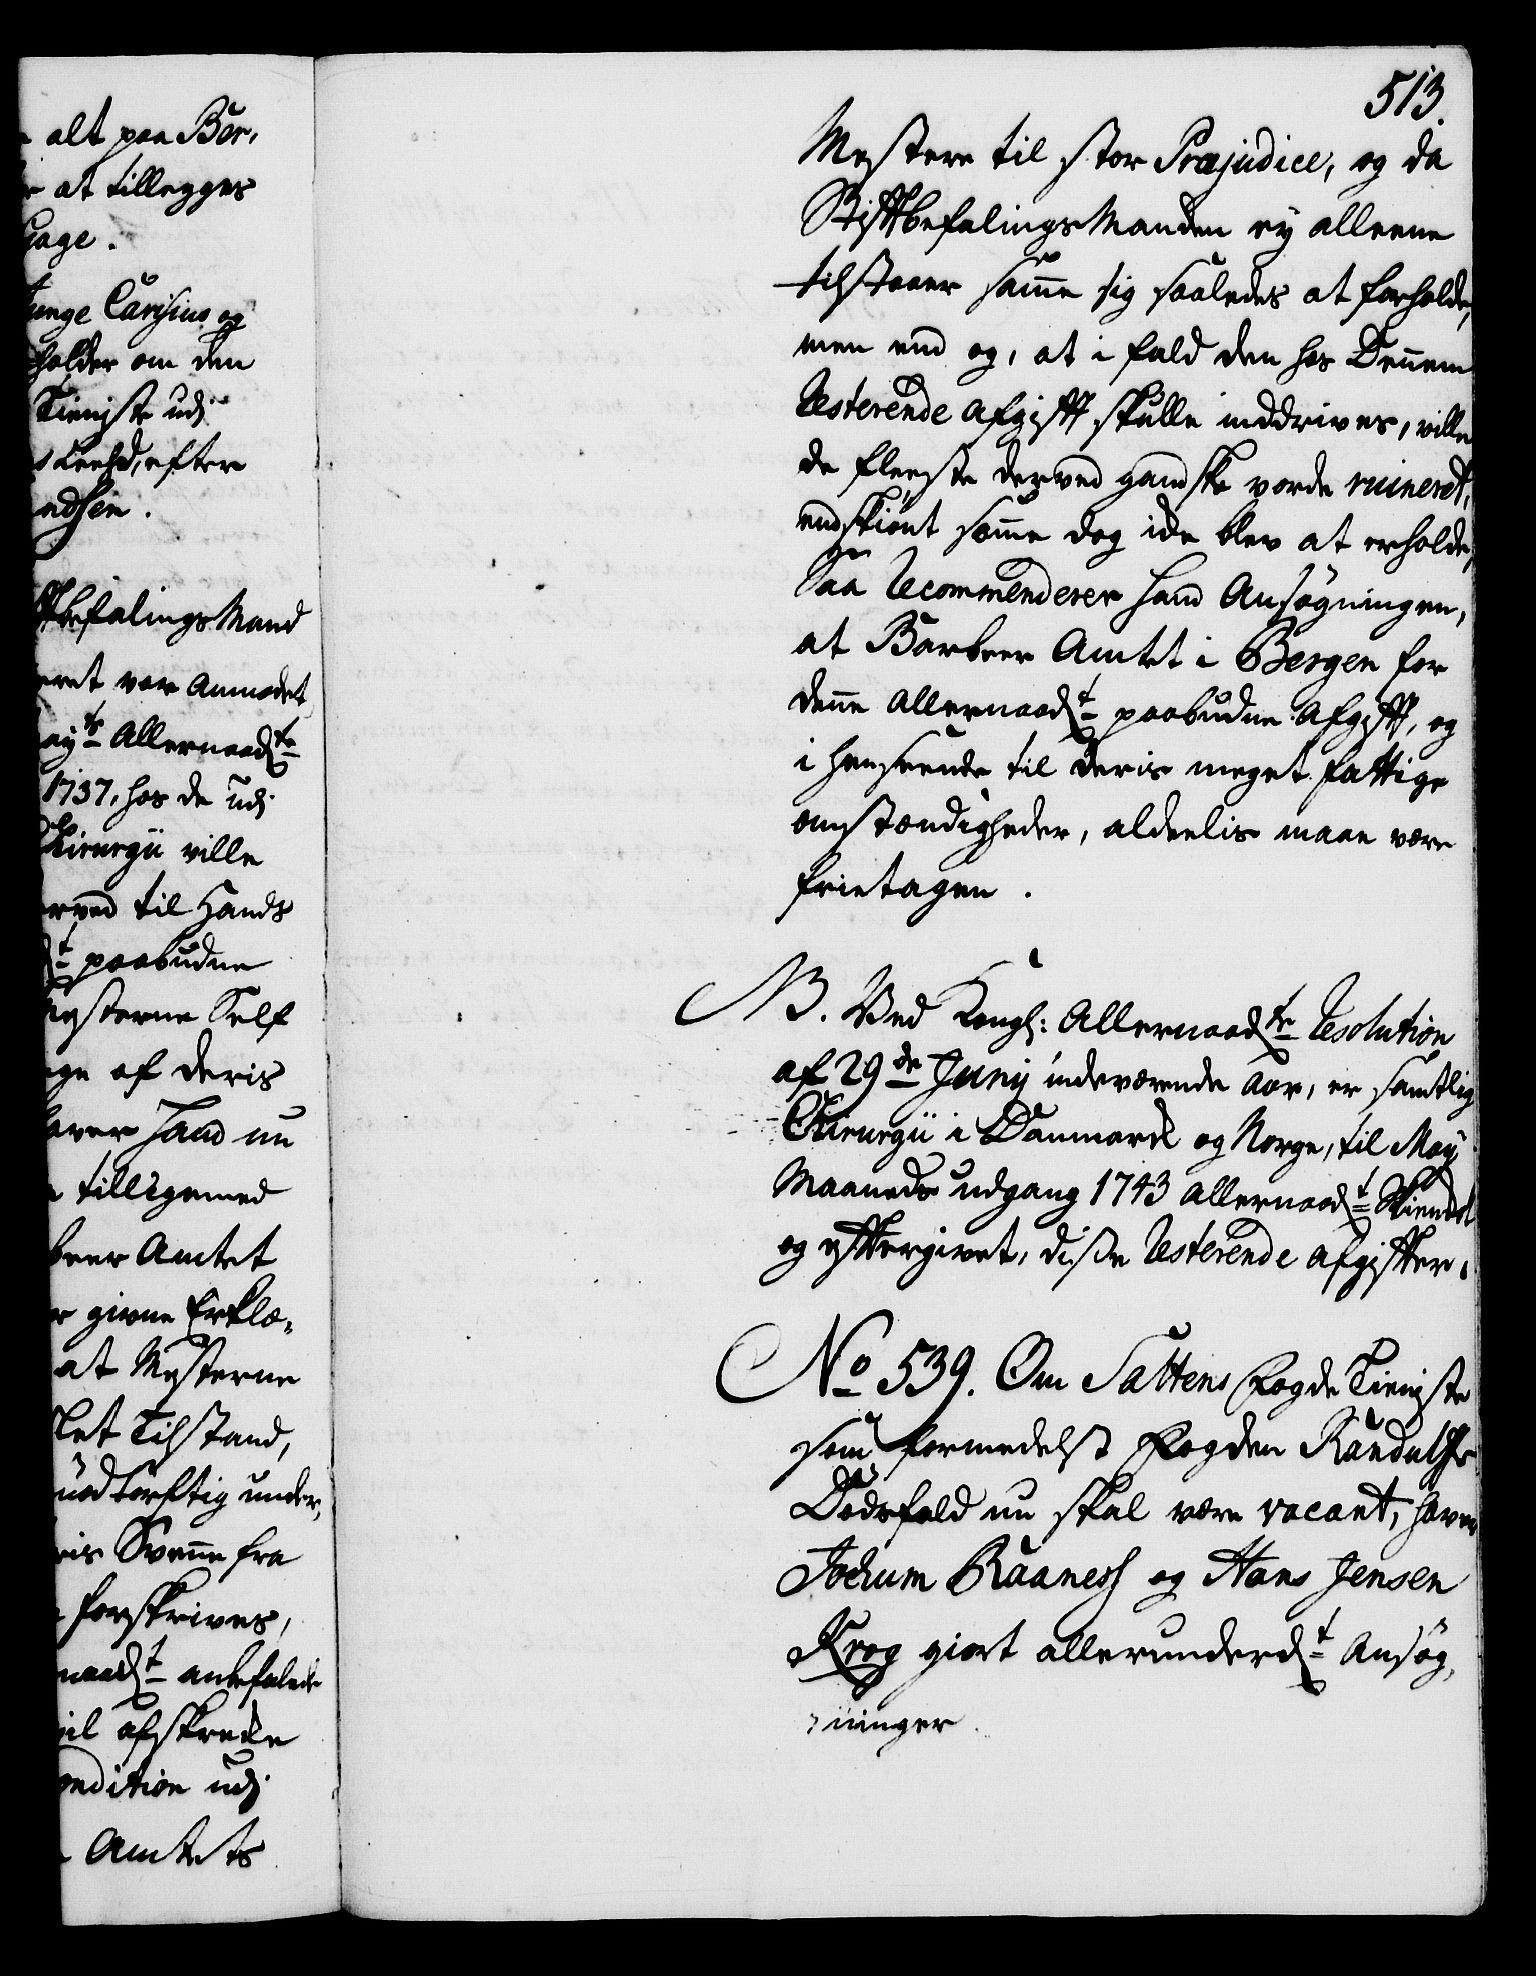 alt paa Ber,
at tillegges
Gage.
unge Carisius og
holder om den
Tieniste udj
efter
ndsen.
befalings Mand
eret var Anmodet
ay.ts Allernaad.te
1737, hos de udj
Chirurgii ville
rved til Hands
t paabudne
Mesterne Self
ge af deris
aver hand nu
tilligemed
beer Amtet
r givne Erklæ-
at Mesterne
slet Tilstand,
nödtörftig under,
ris Svenne fra
forskrives,
naad.t anbefalede
til afskrede
Condition udj
Amtets
513.
Mestere til stor Præjudice, og da
Stiftbefalings Manden ey alleene
tilstaaer samme sig saaledes at forholde,
men end og, at i fald den hos Dennem
Resterende Afgift skulle inddrives, ville
de fleeste derved gandske vorde ruineret,
endskiönt samme dog ide blev at erholde,
Saa Recommenderer hand Ansögningen,
at Barbeer Amtet i Bergen for
denne Allernaad.t paabudne Afgift, og
i henseende til deris meget fattige
omstændigheder, aldeelis maae være
frietagen.
NB. Ved Kongl: Allernaad.te Resolution
af 29.de Junij indeværende Aar, er samtlig
Chirurgii i Danmark og Norge, til Maij
Maaneds udgang 1743 allernaad.t Skienket
og eftergivet, disse Resterende Afgifter.
No 539. Om Saltens Fogde Tieniste
som formedelst Fogden Randulfs
Dødsfald nu skal være vacant, haver
Jochum Raanes og Hans Jensen
Krog giort allerunderd.t Ansög,
ninger